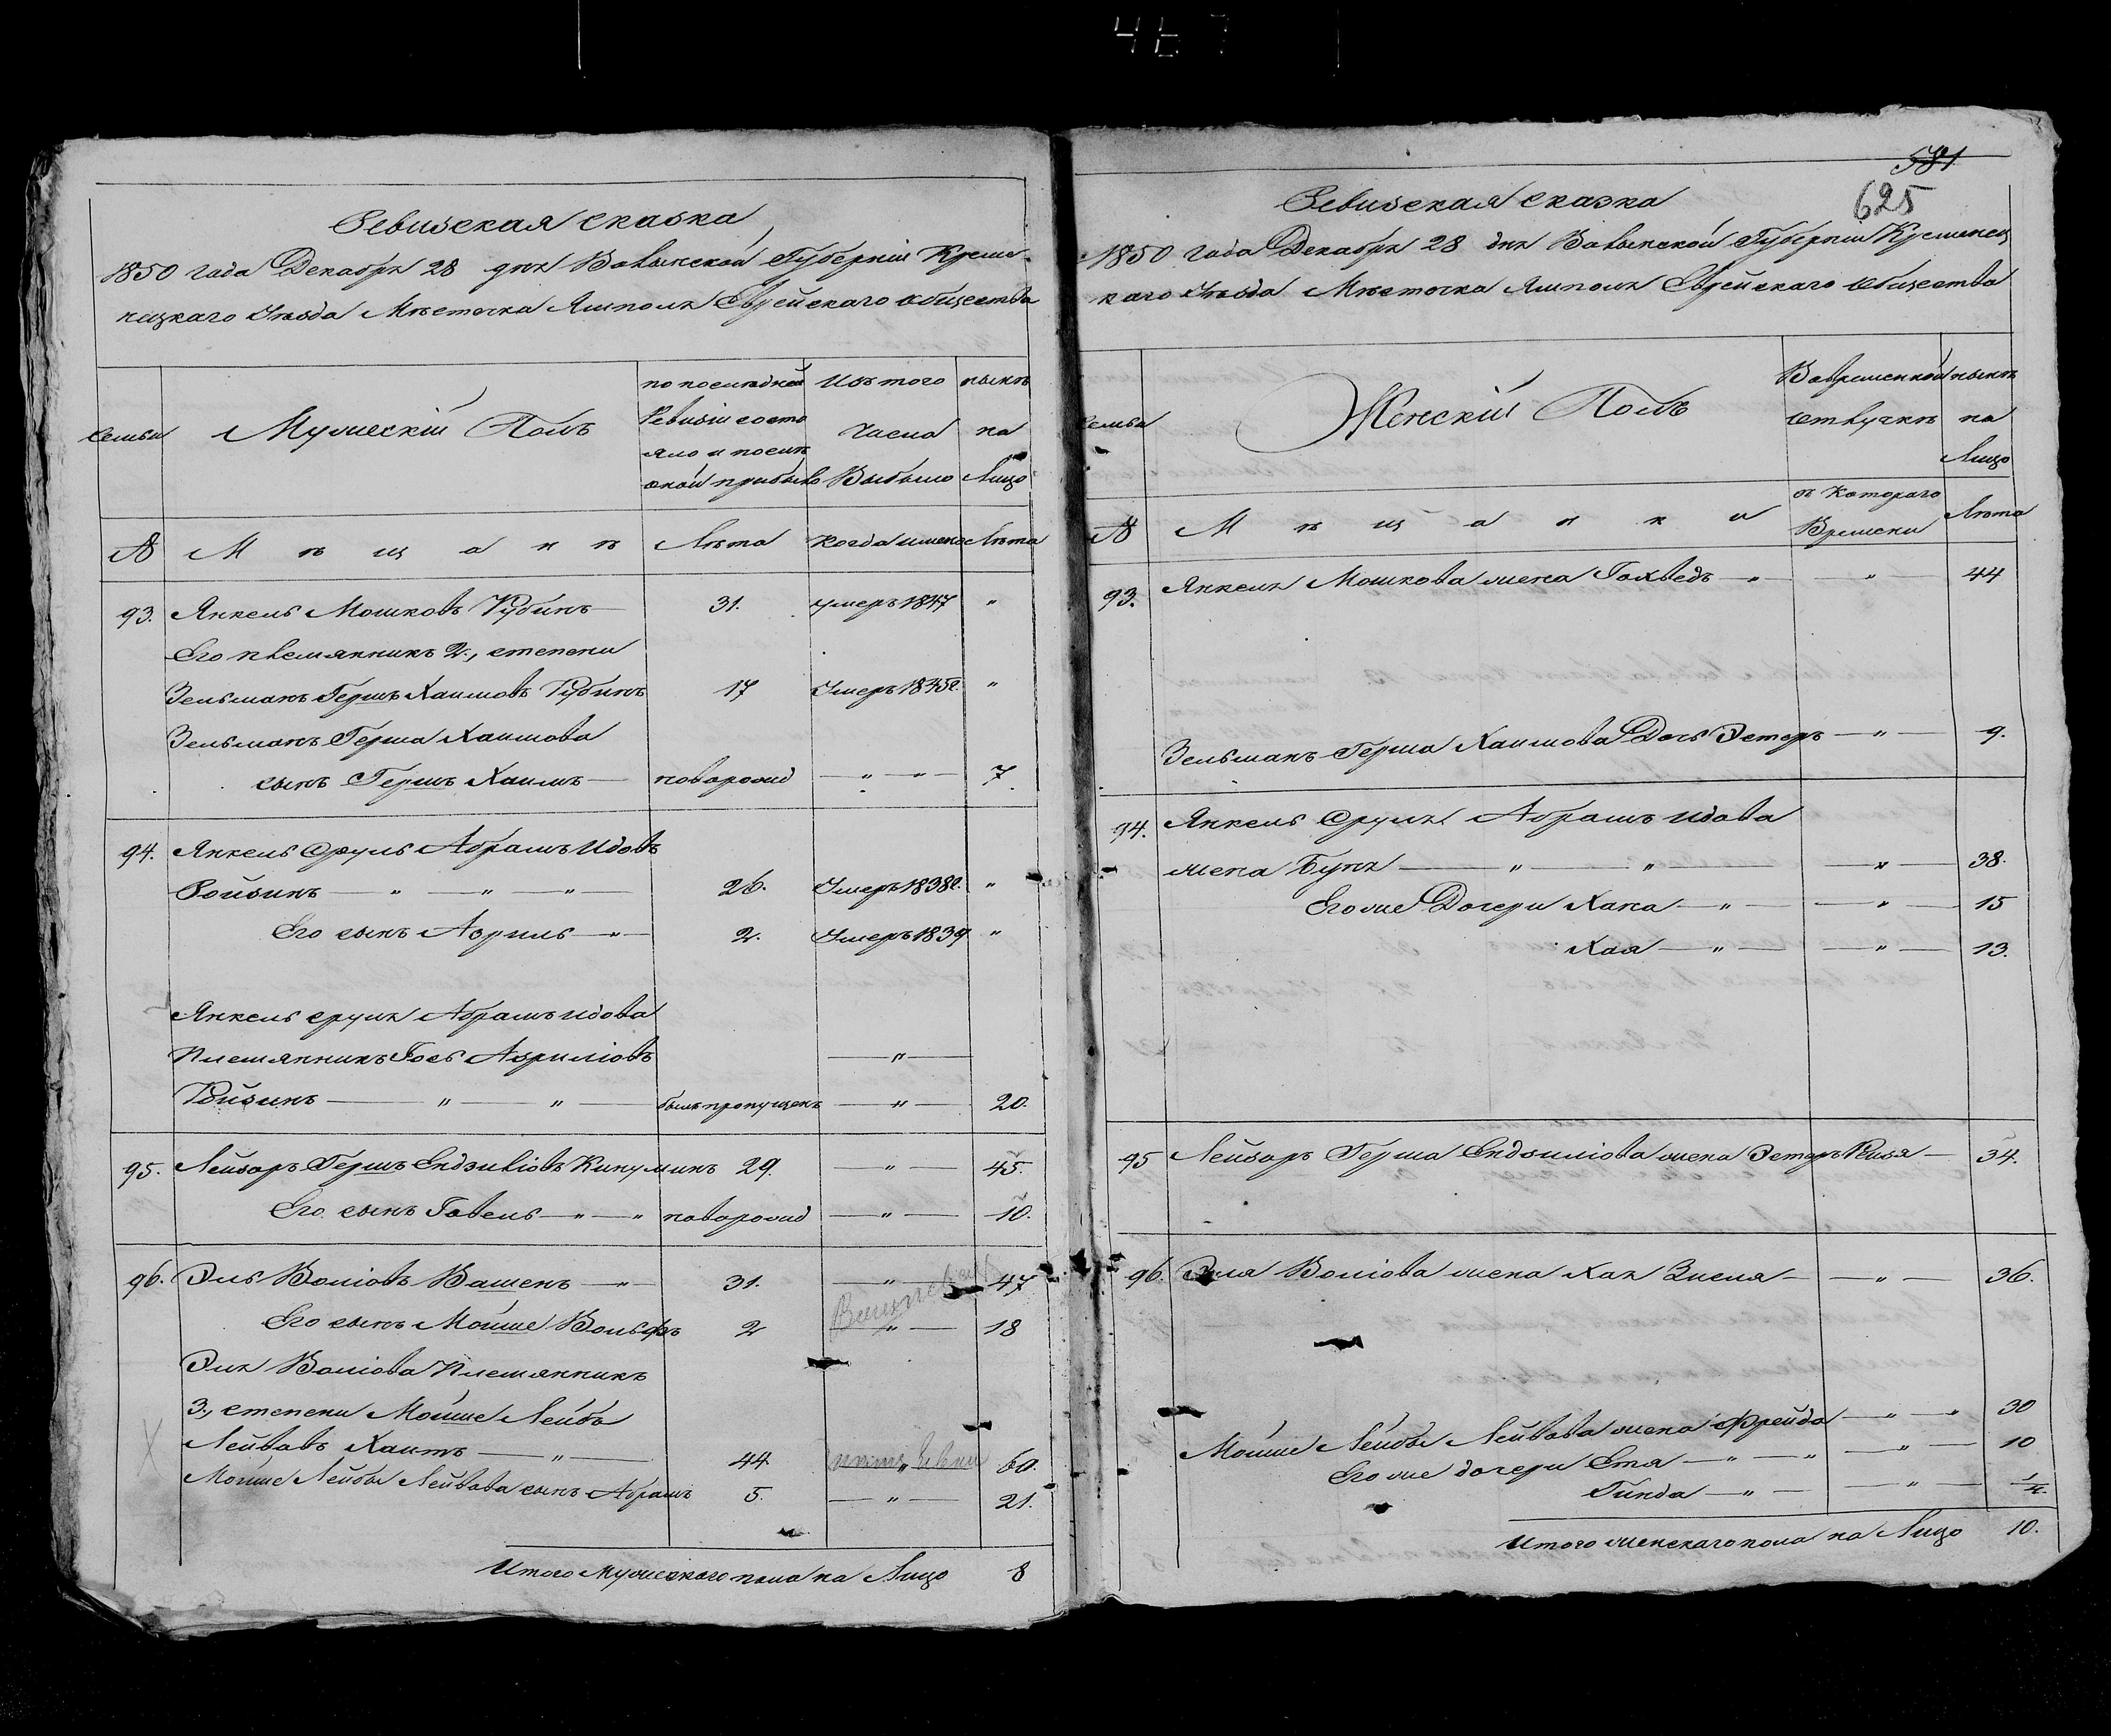 467
Ревизская сказка
1850 года Декабря 28 дня Волынской Губернии Креме-
нецкаго Уезда Местечка Ямполя Еврейскаго общества
семьи
Мужескій Полъ
по последней
Ревизіи состо
яло и после
оной прибыло
Изъ того
числа
Выбыло
ныне
на
Лицо
№
М ѣ щ а н ѣ
Лѣта
когда именно
Лѣта
93. Янкель Мошковъ Рубинъ 31. умеръ 1847 "
Его племянникъ 2., степени
Зельманъ Гершъ Хаимовъ Рубинъ 17 Умеръ 1845г. "
Зельманъ Герша Хаимова
сынъ Гершъ Хаимъ новорожд " 7.
94. Янкель Сруль Абрамъ Идовъ
Ройзинъ " " " 26. Умеръ 1838г. "
Его сынъ Азриль " 2. Умеръ 1839 "
Янкель Сруля Абрамъ Идова
Племянникъ Гось Азриліовъ "
Ройзинъ " " былъ пропущенъ " 20.
95. Лейзоръ Гершъ 29. " 45.
Его сынъ Говель " " новорожд " 10.
96. Эль Воліовъ Вашенъ " 31. " 47
Его сынъ Мойше Вольфъ 2 " 18
Эля Воліова Племянникъ
3., степени Мойше Лейбъ
Лейвовъ Хаитъ " 44. " 60.
Мойше Лейбы Лейвова сынъ Абрамъ 5. " 21.
Итого мужескаго пола на Лицо 8
581
625
Ревизская сказка
1850 года Декабря 28 дня Волынской Губернии Кременец
каго Уезда Местечка Ямполя Еврейскаго общества
семьи
Женскій Полъ
Вовременной
отлучкѣ
ныне
на
Лицо
№
М ѣ щ а н к и
съ Котораго
Времени
Лѣта
93. Янкеля Мошкова жена Гохведъ " " 44
Зельманъ Герша Хаимова Дочь Эстеръ " 9.
94. Янкель Сруля Абрамъ Идова
жена Буня " " " 38.
Его же Дочери Хана " " 15
Хая " " 13.
95 Лейзоръ Герша жена Эстеръ Рися 34.
96. Эля Воліова жена Хая Зисля " 36.
Мойше Лейбы Лейвова жена Фрейда " " 30
Его же дочери Етя " " " 10
Гинда " " 1/4.
Итого женскаго пола на Лицо 10.